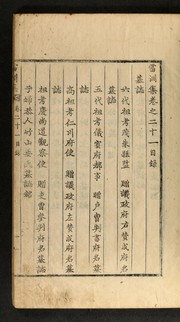 雷淵集卷之二十一目錄
墓誌
六代祖考茂朱縣監 贈議政府右贊成府君
墓誌
五代祖考儀賓府都事 贈戶曹判書府君墓
誌
高祖考仁川府使 贈議政府左贊成府君墓
誌
祖考慶尙道觀察使 贈吏曹參判府君墓誌
子婦恭人竹山安氏墓誌銘